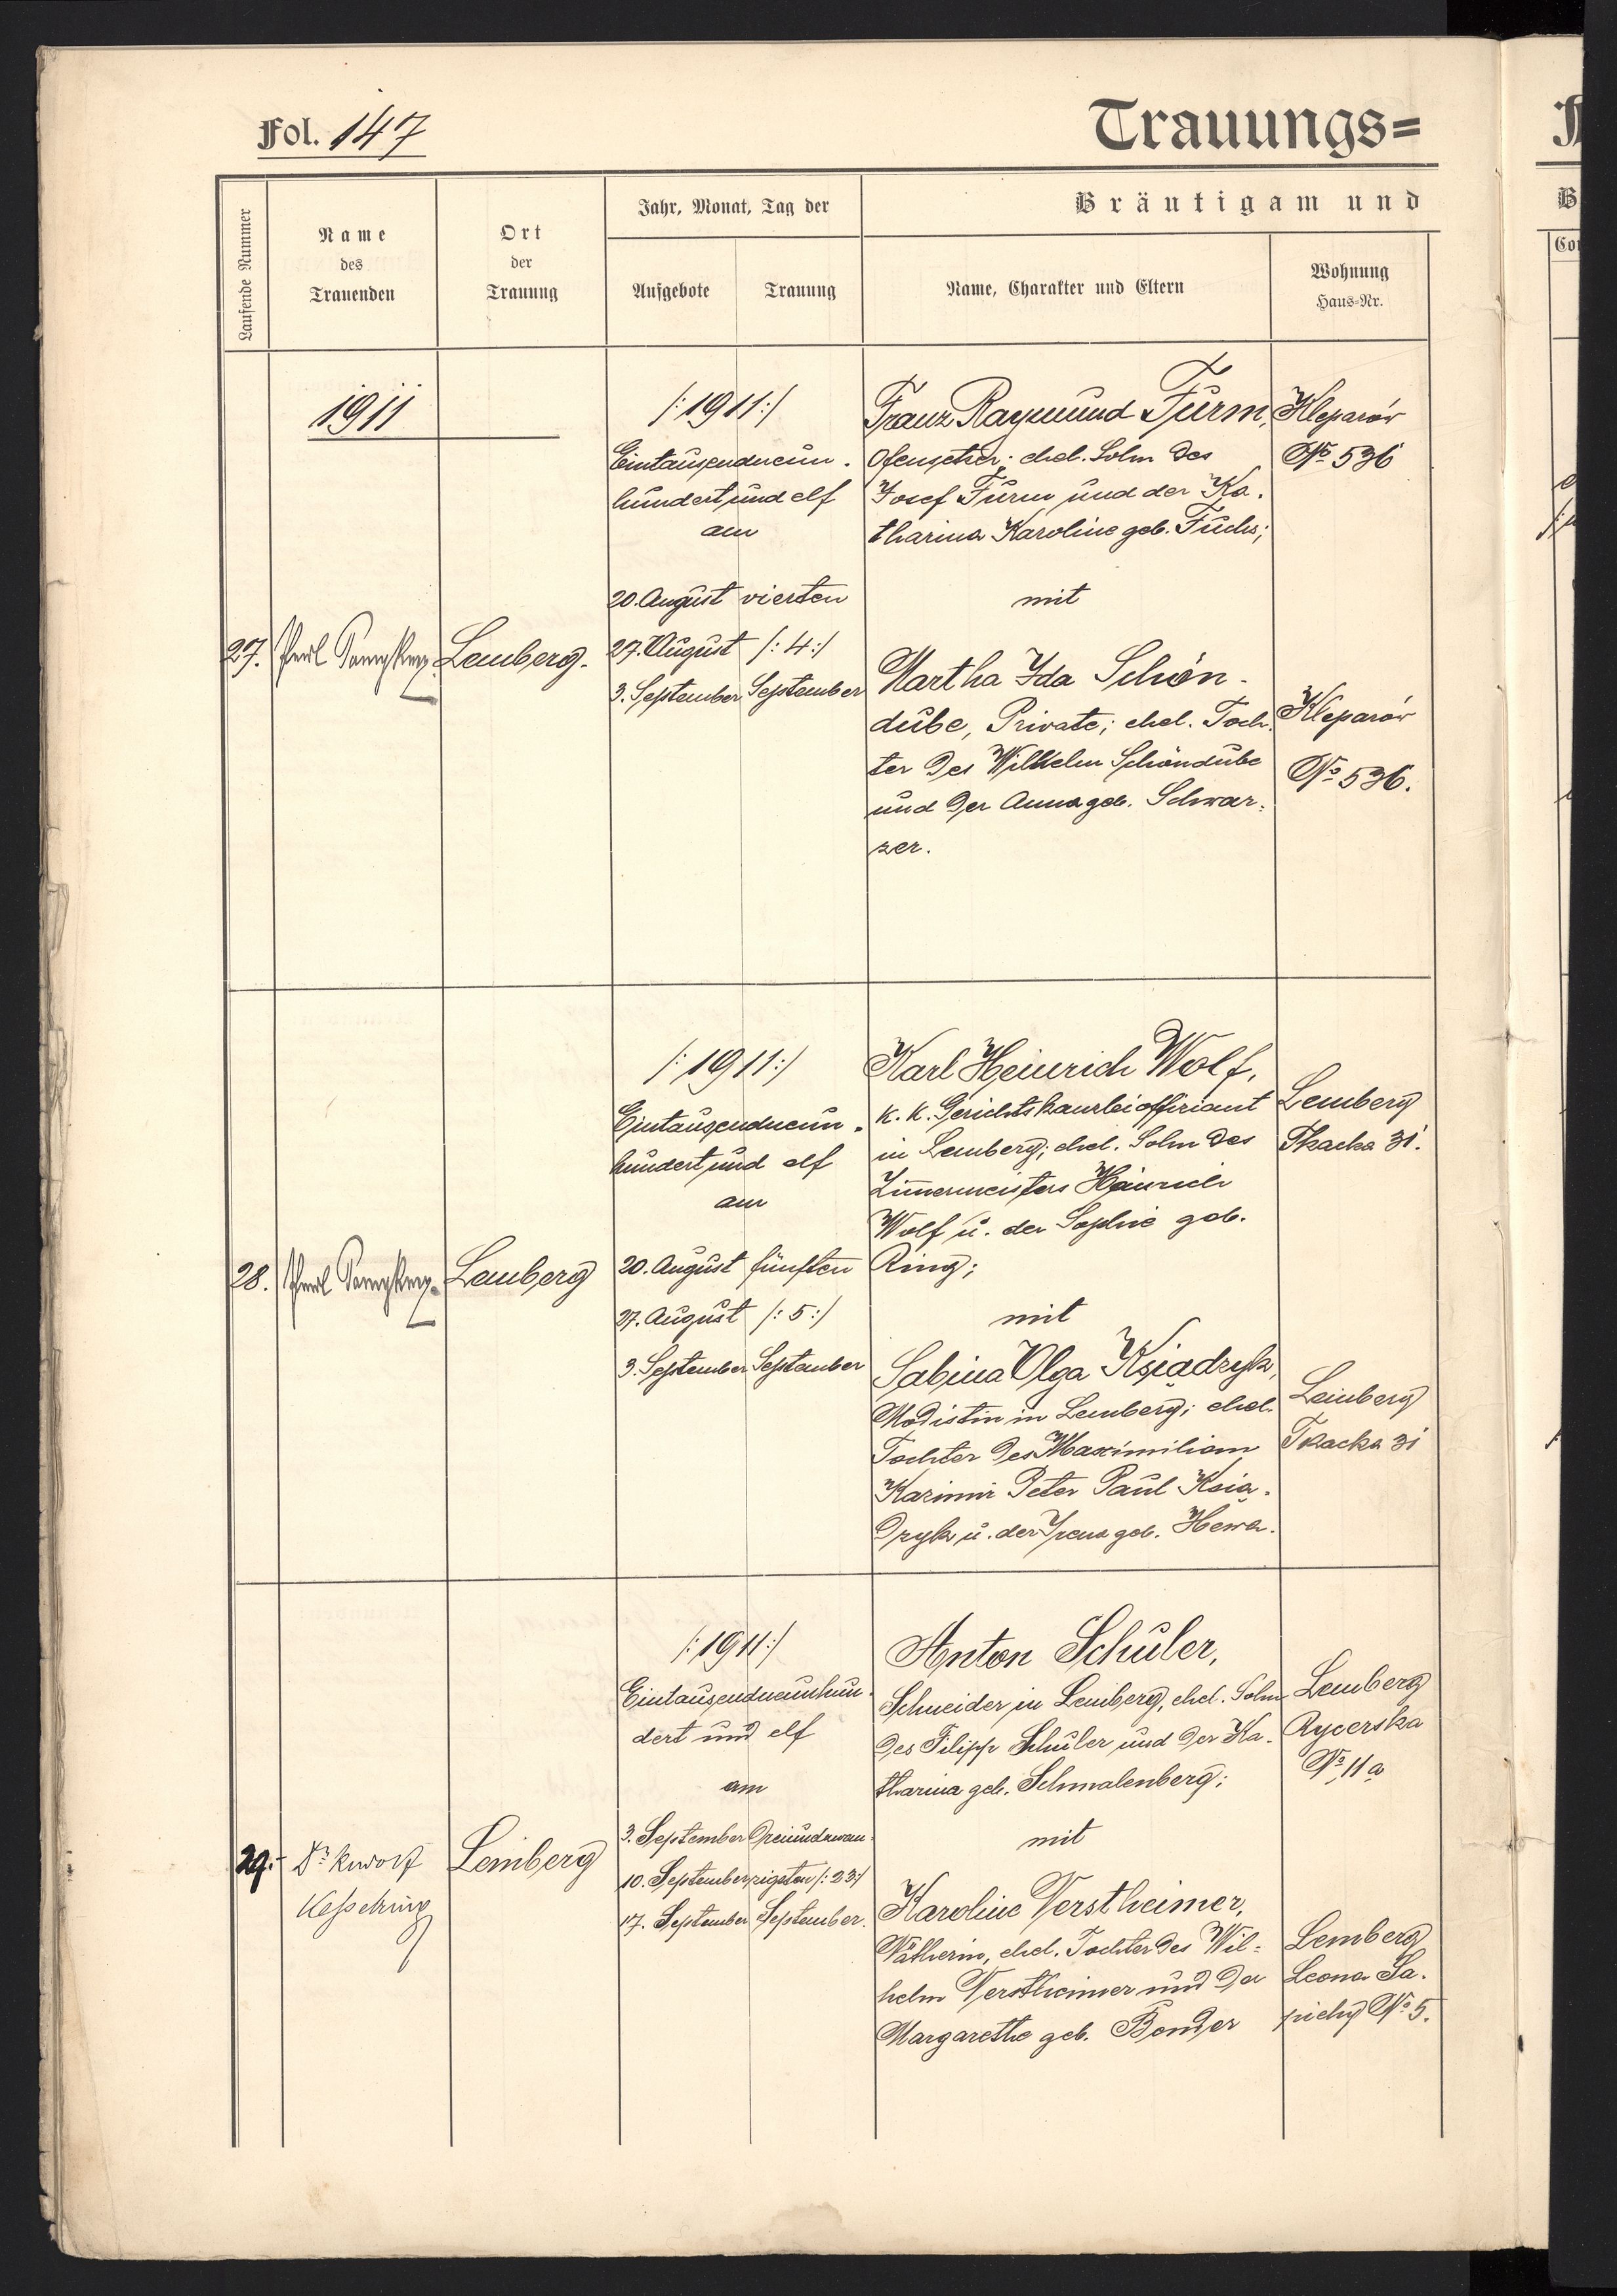 Fol. 147
Trauungs=
Laufende Nummer
Name
des
Trauenden
Ort
der
Trauung
Jahr, Monat, Tag der
Aufgebote
Trauung
Bräutigam und
Name, Charakter und Eltern
Wohnung
Haus=Nr.
1911
/:1911:/
Eintausendneun-
hundert und elf
am
20. August vierten
27. August /:4:/
3. September September
27.
Lemberg.
Franz Raymund Furm,
Ofensetzer; ehel. Sohn des
Josef Furm und der Ka-
tharina Karoline geb. Fuchs;
mit
Martha Ida Schön-
dube, Private; ehel. Toch-
ter des Wilhelm Schöndube
und der Anna geb. Schwar-
zer.
Kleparów
No 536
Kleparów
No 536.
/:1911:/
Eintausendneun-
hundert und elf
am
20. August fünften
27. August /:5:/
3. September September
28.
Lemberg
Karl Heinrich Wolf,
k. k. Gerichtskanzleioffiziant
in Lemberg; ehel. Sohn des
Zim̅ermeisters Heinrich
Wolf u. der Sophie geb.
Ring;
mit
Sabina Olga Książdzyk,
Modistin in Lemberg; ehel.
Tochter des Maximilian
Kazimir Peter Paul Książ-
dzyk u. der Irena geb. Hewa.
Lemberg
Tkacka 31.
Lemberg
Tkacka 31
/:1911:/
Eintausendneunhun-
dert und elf
am
3. September dreiundzwan-
10. September zigsten /:23:/
17. September September.
29.
Dr.
Kesselring
Lemberg
Anton Schuler,
Schneider in Lemberg, ehel. Sohn
des Filipp Schuler und der Ka-
tharina geb. Schmalenberg;
mit
Karoline Verstheimer,
Nätherin, ehel. Tochter des Wil=
helm Verstheimer und der
Margarethe geb. Bender
Lemberg
Rycerska
No 11a
Lemberg
Leona Sa-
piehy No 5.